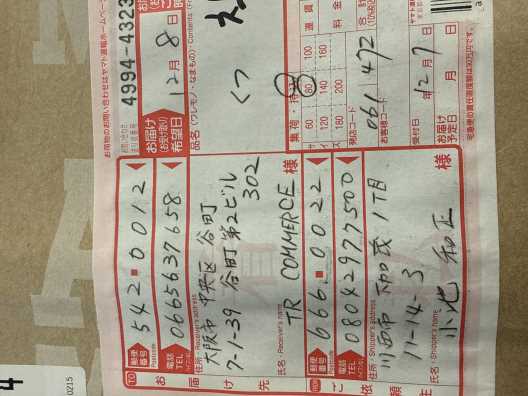 お荷物のお問い合わせはヤマト運輸ホームページ
4994-4323
お届け
(お受け取り)
希望日
12月8日
品名(ワレモノ・なまもの)・Contents
くつ
集荷
サイズ
60 80 100
120 140 160
180 200
運賃
料金
合計
発店コード
061472
お客様コード
受付日
12月7日
お届け予定日
月 日
TO
お届け先
郵便番号
542-0012
電話 TEL
0665637658
住所・Receiver's address
大阪市 中央区 谷町
7-1-39 谷町第2ビル
302
氏名・Receiver's name
TR COMMERCE 様
ご依頼主
郵便番号
666-0022
電話 TEL
08042977500
住所・Shipper's address
川西市 下加茂 1丁目
11-14-3
氏名・Shipper's name
小池 和正 様
0215